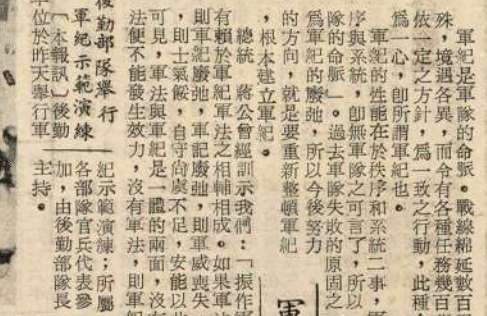 軍紀是軍隊的命脈。戰線綿延數百
殊,境遇各異,而令有各種任務幾百
依一定之方針,爲一致之行動,此種
爲一心,卽所謂軍紀也。
軍紀的性能在於秩序和系統二事,
序與系統,卽無軍隊之可言了,所以
隊的命脈」。過去軍隊失敗的原固之
爲軍紀的廢弛,所以今後努力
的方向,就是要重新整頓軍紀
,根本建立軍紀。
總統 蔣公曾經訓示我們:「振作軍
有賴於軍紀軍法之相輔相成。如果軍
則軍紀廢弛,軍記廢弛,則軍威喪失
,則士氣餒,自守尚處不足,安能以
可見,軍法與軍紀是一體的兩面,沒
法便不能發生效力,沒有軍法,則軍紀
軍
後勤部隊舉行
軍紀示範演練
〔本報訊〕後勤
單位於昨天舉行軍
紀示範演練;所屬
各部隊官兵代表參
加,由後勤部隊長
主持。